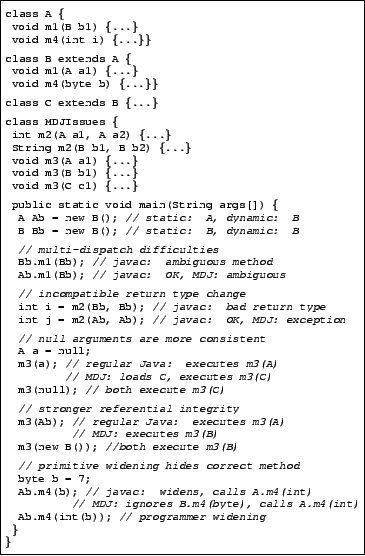 class A {
void m1(B b1) {...}
void m4(int i) {...}}
class B extends A {
void m1(A a1) {...}
void m4(byte b) {...}}
class C extends B {...}
class MDJIssues {
int m2(A a1, A a2) {...}
String m2(B b1, B b2) {...}
void m3(A a1) {...}
void m3(B b1) {...}
void m3(C c1) {...}
public static void main(String args[]) {
A Ab = new B(); // static: A, dynamic: B
B Bb = new B(); // static: B, dynamic: B
// multi-dispatch difficulties
Bb.m1(Bb); // javac: ambiguous method
Ab.m1(Bb); // javac: OK, MDJ: ambiguous
// incompatible return type change
int i = m2(Bb, Bb); // javac: bad return type
int j = m2(Ab, Ab); // javac: OK, MDJ: exception
// null arguments are more consistent
A a = null;
m3(a); // regular Java: executes m3(A)
// MDJ: loads C, executes m3(C)
m3(null); // both execute m3(C)
// stronger referential integrity
m3(Ab); // regular Java: executes m3(A)
// MDJ: executes m3(B)
m3(new B()); //both execute m3(B)
// primitive widening hides correct method
byte b = 7;
Ab.m4(b); // javac: widens, calls A.m4(int)
// MDJ: ignores B.m4(byte), calls A.m4(int)
Ab.m4(int(b)); // programmer widening
}
}